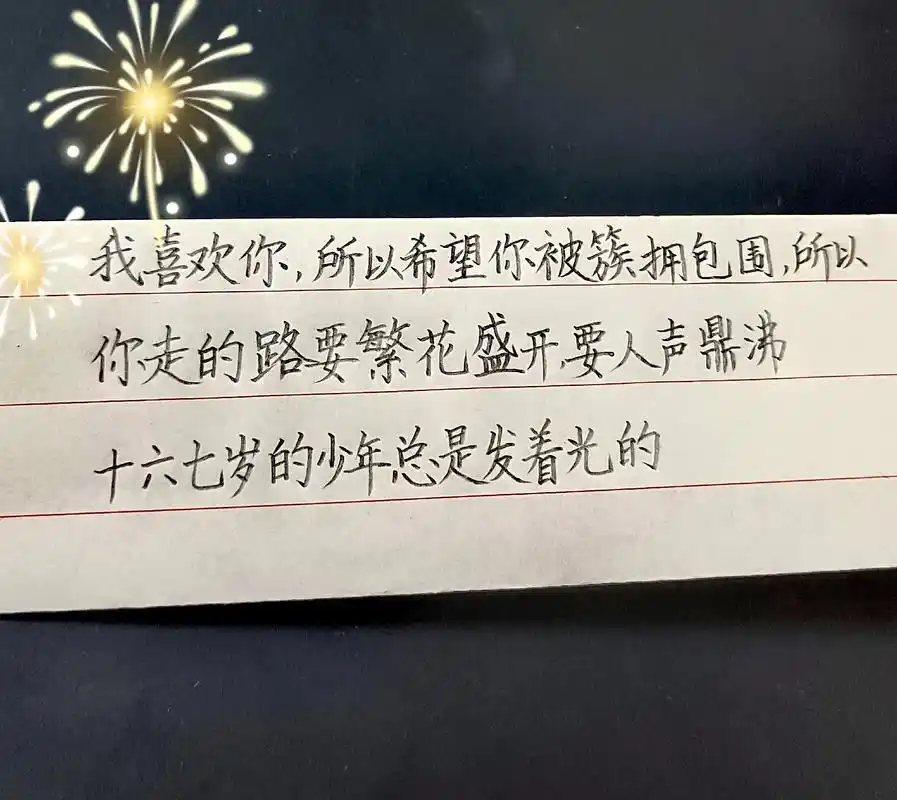 我喜欢你,所以希望你被簇拥包围,所以
你走的路要繁花盛开,要人声鼎沸
十六七岁的少年,总是发着光的